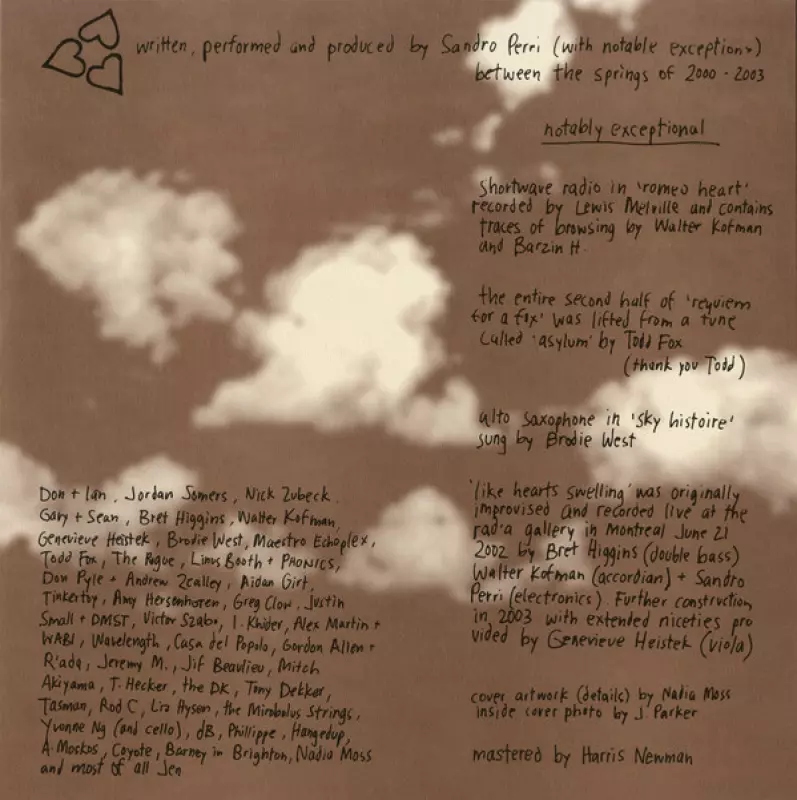 written, performed and produced by Sandro Perri (with notable exceptions)
between the springs of 2000 - 2003
notably exceptional
shortwave radio in 'romeo heart'
recorded by Lewis Melville and contains
traces of browsing by Walter Kofman
and Barzin H.
the entire second half of 'requiem
for a fox' was lifted from a tune
called 'asylum' by Todd Fox
(thank you Todd)
alto saxophone in 'sky histoire'
sung by Brodie West
'like hearts swelling' was originally
improvised and recorded live at the
rad'a gallery in Montreal June 21
2002 by Bret Higgins (double bass)
Walter Kofman (accordian) + Sandro
Perri (electronics). Further construction
in 2003 with extended niceties pro
vided by Genevieve Heistek (viola)
cover artwork (details) by Nadia Moss
inside cover photo by J. Parker
mastered by Harris Newman
Don + Ian, Jordan Somers, Nick Zubeck
Gary + Sean, Bret Higgins, Walter Kofman,
Genevieve Heistek, Brodie West, Maestro Echoplex,
Todd Fox, The Rogue, Linus Booth + PHONICS,
Don Pyle + Andrew Zealley, Aidan Girt,
Tinkertoy, Amy Hersenhoren, Greg Clow, Justin
Small + DMST, Victor Szabo, I. Khider, Alex Martin +
WABI, Wavelength, Casa del Popolo, Gordon Allen +
R'ada, Jeremy M., Jif Beaulieu, Mitch
Akiyama, T. Hecker, the DK, Tony Dekker,
Tasman, Rod C, Liz Hysen, the Mirabolus Strings,
Yvonne Ng (and cello), dB, Phillippe, Hangedup,
A. Moskos, Coyote, Barney in Brighton, Nadia Moss
and most of all Jen